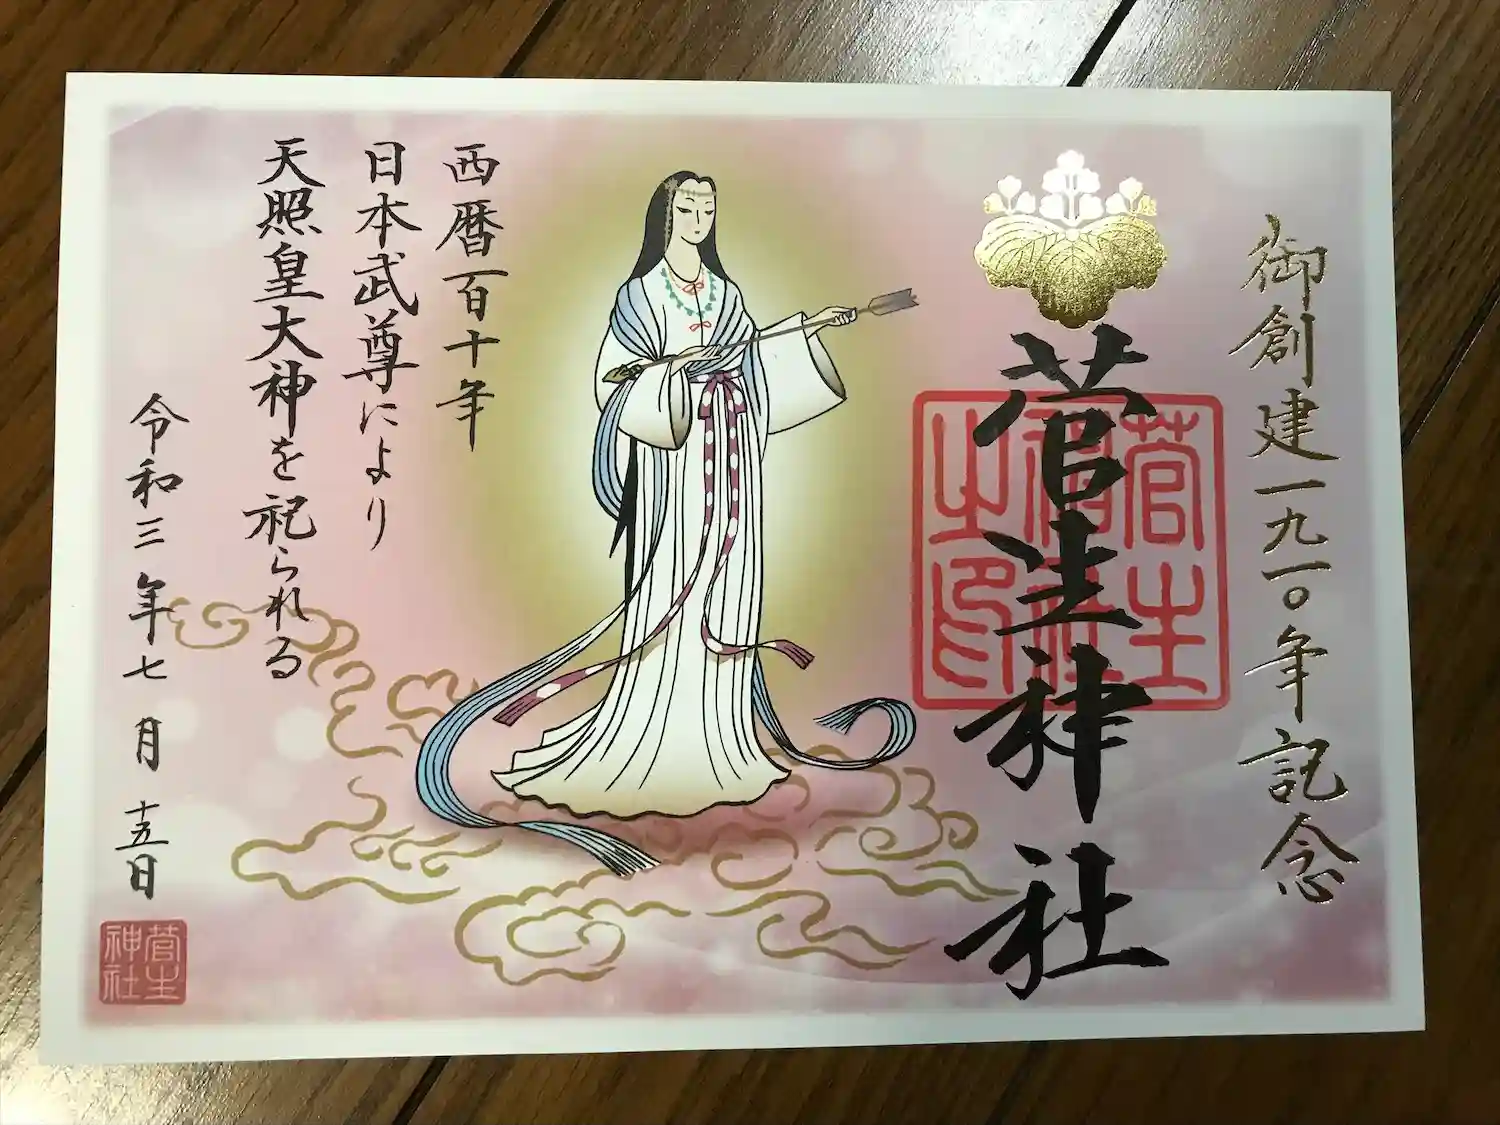 御創建一九一〇年記念
菅生神社
菅生
神社
之印
西暦百十年
日本武尊により
天照皇大神を祀られる
令和三年七月十五日
菅生
神社